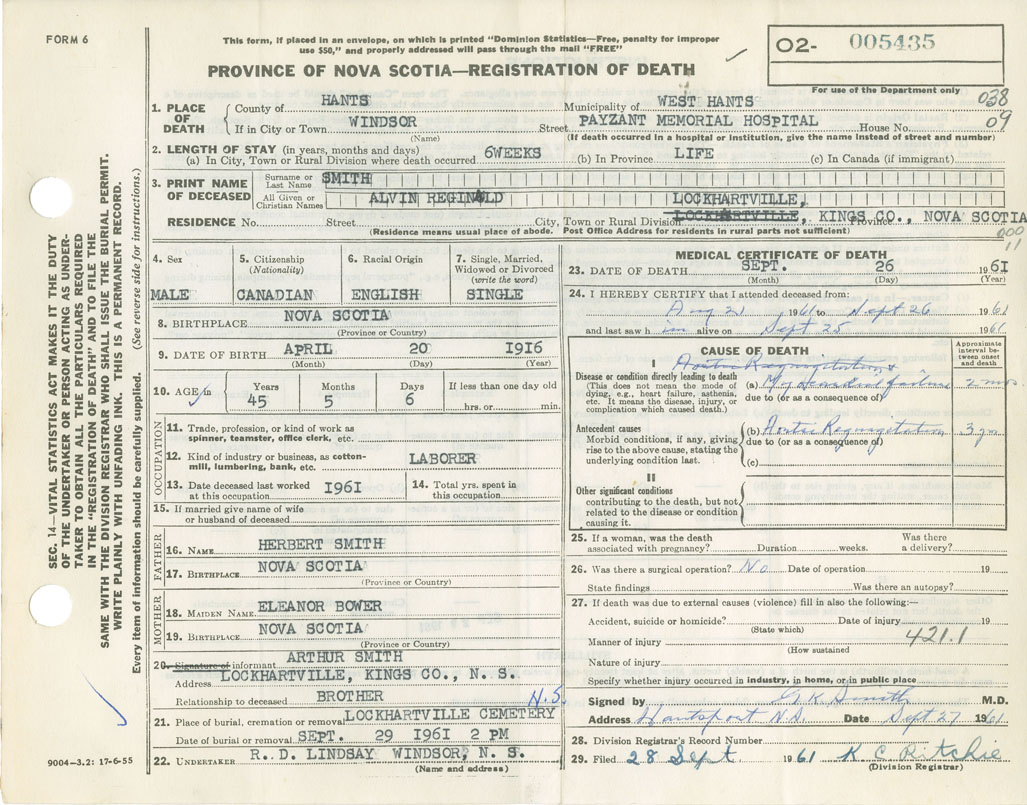 FORM 6
This form, if placed in an envelope, on which is printed "Dominion Statistics—Free, penalty for improper
use $50," and properly addressed will pass through the mail "FREE"
02- 005435
PROVINCE OF NOVA SCOTIA—REGISTRATION OF DEATH
For use of the Department only
038
09
1. PLACE OF DEATH
County of HANTS Municipality of WEST HANTS
If in City or Town WINDSOR Street PAYZANT MEMORIAL HOSPITAL House No.
(Name) (If death occurred in a hospital or institution, give the name instead of street and number)
2. LENGTH OF STAY (in years, months and days)
(a) In City, Town or Rural Division where death occurred 6WEEKS (b) In Province LIFE (c) In Canada (if immigrant)
3. PRINT NAME OF DECEASED
Surname or Last Name SMITH
All Given or Christian Names ALVIN REGINALD LOCKHARTVILLE,
RESIDENCE No. Street City, Town or Rural Division LOCKHARTVILLE, Province KINGS CO., NOVA SCOTIA
(Residence means usual place of abode. Post Office Address for residents in rural parts not sufficient)
000
11
4. Sex
MALE
5. Citizenship
(Nationality)
CANADIAN
6. Racial Origin
ENGLISH
7. Single, Married,
Widowed or Divorced
(write the word)
SINGLE
8. BIRTHPLACE NOVA SCOTIA
(Province or Country)
9. DATE OF BIRTH APRIL 20 1916
(Month) (Day) (Year)
10. AGE in
Years Months Days If less than one day old
45 5 6 hrs. or min.
OCCUPATION
11. Trade, profession, or kind of work as
spinner, teamster, office clerk, etc.
12. Kind of industry or business, as cotton-
mill, lumbering, bank, etc. LABORER
13. Date deceased last worked
at this occupation 1961
14. Total yrs. spent in
this occupation
15. If married give name of wife
or husband of deceased
FATHER
16. NAME HERBERT SMITH
17. BIRTHPLACE NOVA SCOTIA
(Province or Country)
MOTHER
18. MAIDEN NAME ELEANOR BOWER
19. BIRTHPLACE NOVA SCOTIA
(Province or Country)
20. Signature of informant ARTHUR SMITH
Address LOCKHARTVILLE, KINGS CO., N. S.
Relationship to deceased BROTHER
N.S.
21. Place of burial, cremation or removal LOCKHARTVILLE CEMETERY
Date of burial or removal SEPT. 29 1961 2 PM
22. UNDERTAKER R. D. LINDSAY WINDSOR, N. S.
(Name and address)
MEDICAL CERTIFICATE OF DEATH
23. DATE OF DEATH SEPT. 26 1961
(Month) (Day) (Year)
24. I HEREBY CERTIFY that I attended deceased from:
Aug 21 1961 to Sept 26 1961
and last saw him alive on Sept 25 1961
CAUSE OF DEATH
Approximate interval between onset and death
I
Aortic Regurgitation &
Disease or condition directly leading to death
(This does not mean the mode of
dying, e.g., heart failure, asthenia,
etc. It means the disease, injury, or
complication which caused death.)
(a) Myocardial failure 2 mos.
due to (or as a consequence of)
Antecedent causes
Morbid conditions, if any, giving
rise to the above cause, stating the
underlying condition last.
(b) Aortic Regurgitation 3 yrs
due to (or as a consequence of)
(c)
II
Other significant conditions
contributing to the death, but not
related to the disease or condition
causing it.
25. If a woman, was the death
associated with pregnancy? Duration weeks. Was there
a delivery?
26. Was there a surgical operation? No Date of operation 19
State findings Was there an autopsy?
27. If death was due to external causes (violence) fill in also the following:—
Accident, suicide or homicide? Date of injury 19
(State which)
421.1
Manner of injury
(How sustained
Nature of injury
Specify whether injury occurred in industry, in home, or in public place
Signed by G K Smith M.D.
Address Hantsport N.S. Date Sept 27 1961
28. Division Registrar's Record Number
29. Filed 28 Sept 1961 K C Ritchie
(Division Registrar)
SEC. 14—VITAL STATISTICS ACT MAKES IT THE DUTY
OF THE UNDERTAKER OR PERSON ACTING AS UNDER-
TAKER TO OBTAIN ALL THE PARTICULARS REQUIRED
IN THE "REGISTRATION OF DEATH" AND TO FILE THE
SAME WITH THE DIVISION REGISTRAR WHO SHALL ISSUE THE BURIAL PERMIT.
WRITE PLAINLY WITH UNFADING INK. THIS IS A PERMANENT RECORD.
Every item of information should be carefully supplied. (See reverse side for instructions.)
9004—3.2: 17-6-55